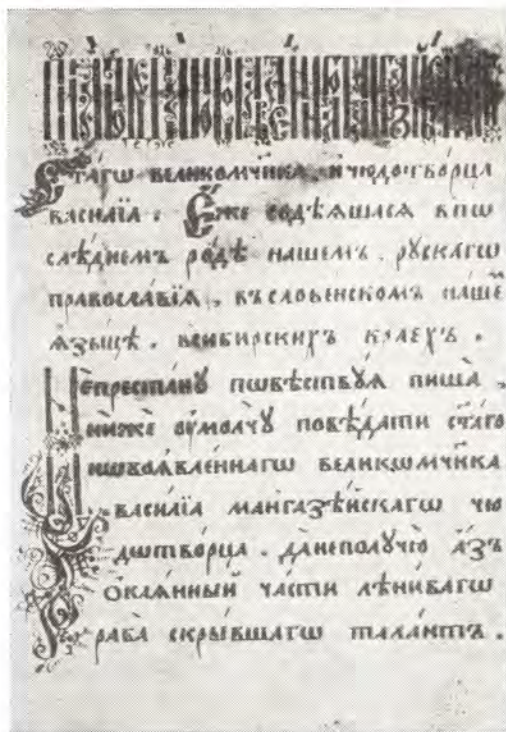 ста́гѡ великомч҃ника, и чюдотво́рца
васи́лїа. Е҆́же содѣ́ѧшасѧ впѡ
слѣ́днемъ ро́дѣ нашемъ, рꙋскагѡ
правосла́вїѧ, въ слове́нскомъ на́ше
ѧ҆зы́цѣ. в сиби́рскихъ краехъ.
Непреста́нꙋ пѡвѣ́ствꙋѧ пиша̀,
ни́же ᲂу҆молчꙋ̀ повѣ́дати ста́го
нѡвоѧвле́ннагѡ великѡмч҃ника
васи́лїа мангазѣ́йскагѡ чю
дѡтво́рца. да неполꙋчю̀ а҆́зъ
ѻ҆каѧ́нный ча́сти лѣни́вагѡ
раба̀ скры́вшагѡ тала́нтъ.